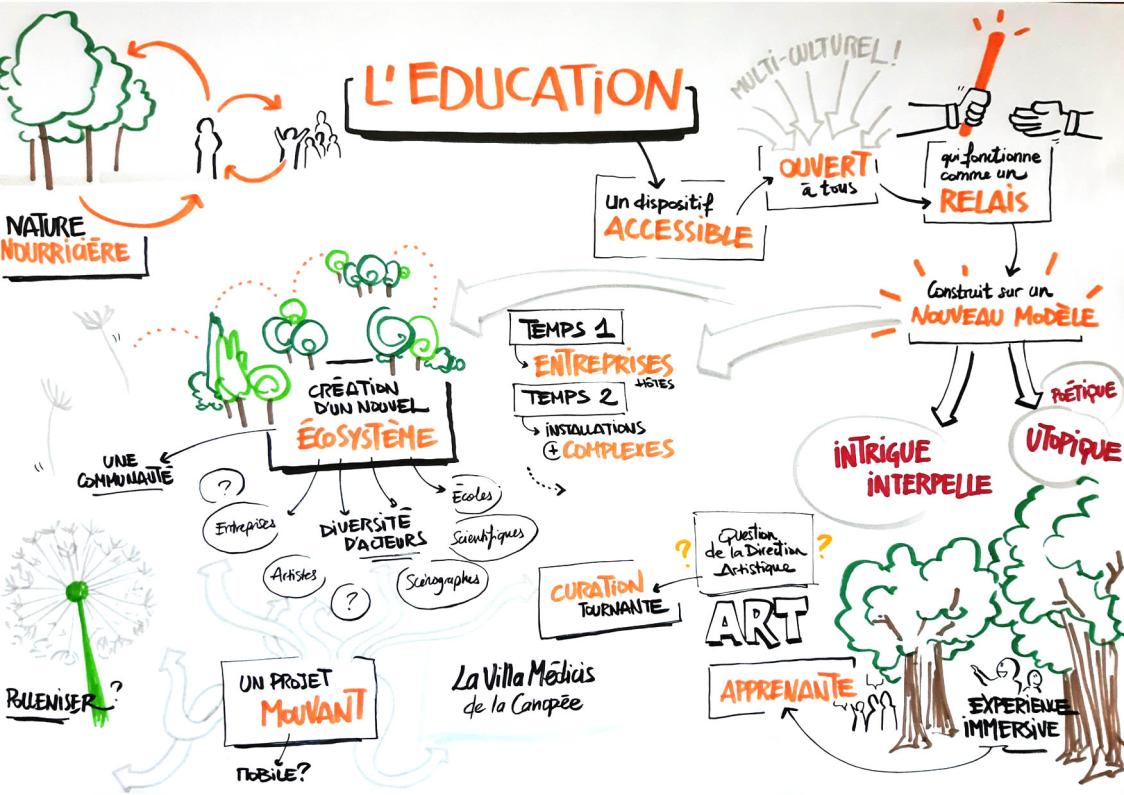 L'EDUCATION
MULTI-CULTUREL!
OUVERT
à tous
un dispositif
ACCESSIBLE
qui fonctionne
comme un
RELAIS
NATURE
NOURRICIÈRE
Construit sur un
NOUVEAU MODÈLE
TEMPS 1
ENTREPRISES
HÔTES
TEMPS 2
INSTALLATIONS
+ COMPLEXES
POÉTIQUE
UTOPIQUE
INTRIGUE
INTERPELLE
CRÉATION
D'UN NOUVEL
ÉCOSYSTÈME
UNE
COMMUNAUTÉ
?
Entreprises
DIVERSITÉ
D'ACTEURS
Écoles
Scientifiques
Artistes
?
Scénographes
? Question ?
de la Direction
Artistique
CURATION
TOURNANTE
ART
APPRENANTE
EXPERIENCE
IMMERSIVE
POLLENISER?
UN PROJET
MOUVANT
MOBILE?
La Villa Médicis
de la Canopée